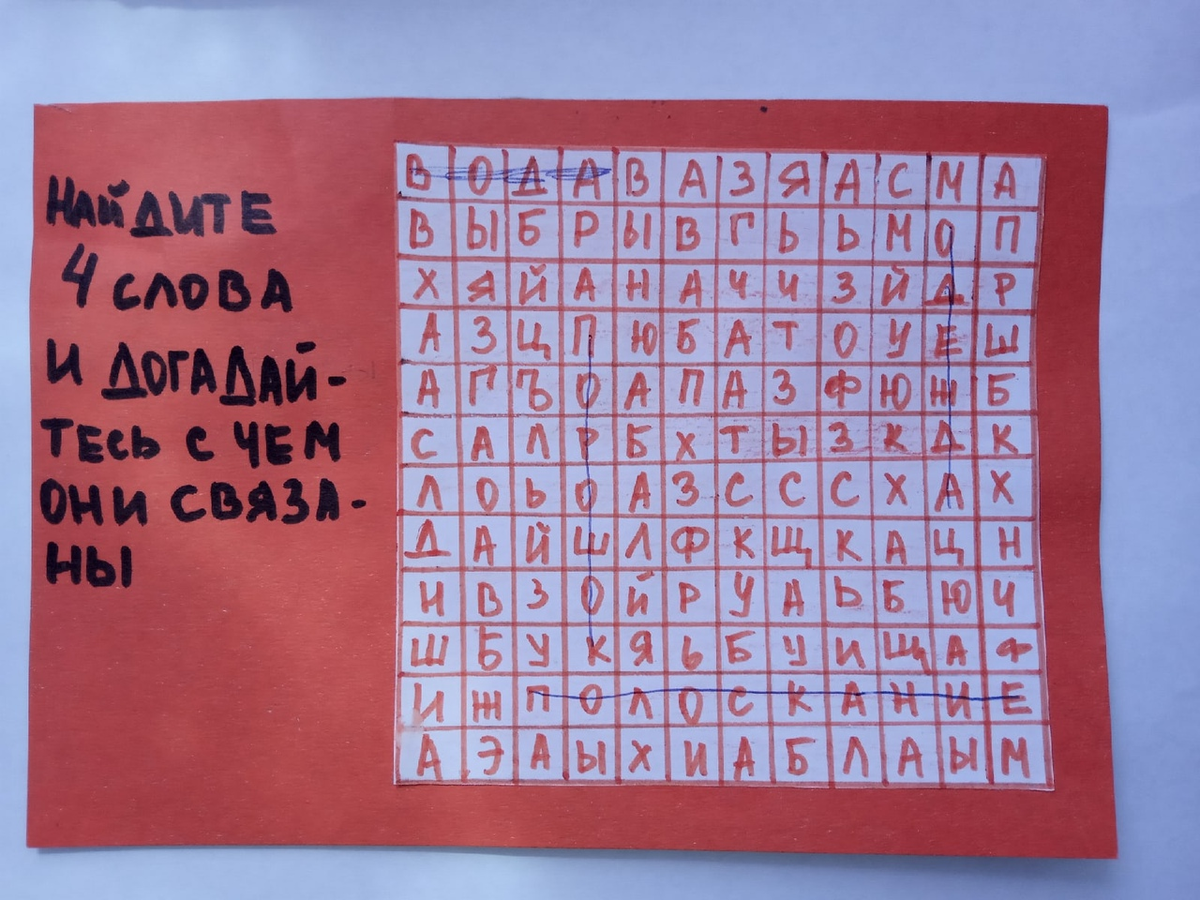 НАЙДИТЕ
4 СЛОВА
И ДОГАДАЙ-
ТЕСЬ С ЧЕМ
ОНИ СВЯЗА-
НЫ
В О Д А В А З Я А С М А
В Ы Б Р Ы В Г Ь Ь М О П
Х Я Й А Н А Ч Ч З Й Д Р
А З Ц П Ю Б А Т О У Е Ш
А Г Ъ О А П А З Ф Ю Ж Б
С А Л Р Б Х Т Ы З К Д К
Л О Ь О А З С С С Х А Х
Д А Й Ш Л Ф К Щ К А Ц Н
И В З О Й Р У А Ь Б Ю Ч
Ш Б У К Я Ь Б У И Щ А Ф
И Ж П О Л О С К А Н И Е
А Э А Ы Х И А Б Л А Ы М